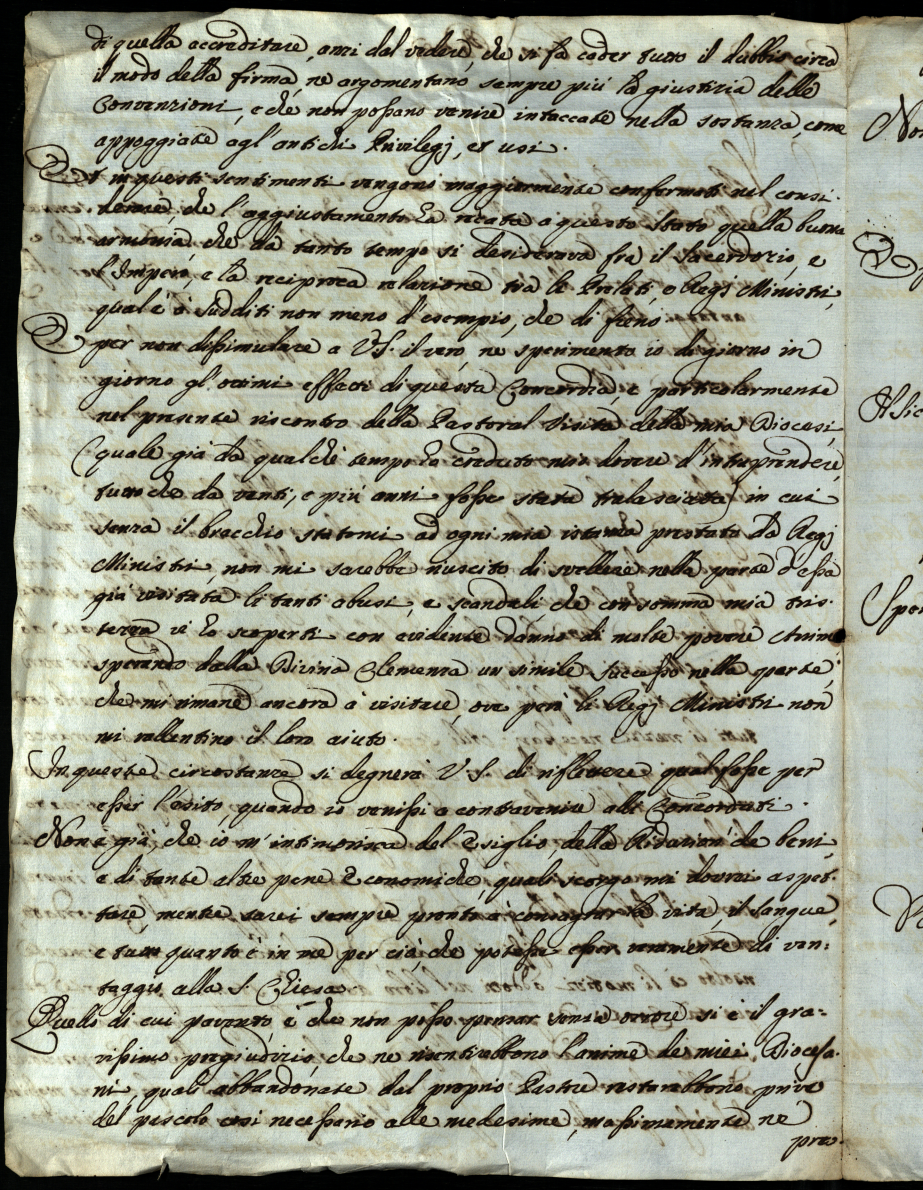 di quella accreditare, anzi dal vedere, che si fà cader tutto il dubbio circa
il modo della firma, ne argomentano sempre più la giustizia delle
Convenzioni, e che non possano venire intaccate nella sostanza, come
appoggiate agl'antichi Privilegj, et usi.
Et in questi sentimenti vengono maggiormente confermati nel consi-
derare, che l'aggiustamento hà recata a questo Stato quella buona
armonia, che da tanto tempo si desiderava fra il Sacerdozio, e
l'Impero, e la reciproca relazione tra li Prelati, e Regj Ministri,
qual'è a sudditi non meno d'esempio, che di freno.
E per non dissimulare a V.S. il vero, ne sperimento io di giorno in
giorno gl'ottimi effetti di questa Concordia, e particolarmente
nel presente riscontro della Pastoral Visita della mia Diocesi,
(quale già da qualche tempo hò creduto mio dovere d'intraprendere,
tutto che da venti, e più anni fosse stata tralasciata) in cui
senza il bracchio statomi ad ogni mia istanza prestato da Regj
Ministri, non mi sarebbe riuscito di svellere nella parte d'essa
già visitata li tanti abusi, e scandali che con somma mia tris-
tezza vi hò scoperti con evidente danno di molte povere Anime
sperando dalla Divina Clemenza un simile successo nella parte,
che mi rimane ancora à visitare, ove però li Regj Ministri non
mi rallentino il loro aiuto.
In queste circostanze si degnerà V.S. di riflettere qual fosse per
esser l'esito, quando io venissi a contravenire alli Concordati.
Non è già, che io m'intimorisca del Esiglio, della Ridazion' de beni,
e di tante altre pene Economiche, quali scorgo mi dovrei aspet-
tare, mentre sarei sempre pronto a' consagrar la vita, il sangue,
e tutto quanto è in me per ciò, che potesse esser veramente di van-
taggio alla S. Chiesa.
Quello di cui pavento, e che non posso pensar senza orrore si è il gra-
vissimo pregiudizio, che ne risentirebbono l'anime de miei Diocesa-
ni, quali abbandonate dal proprio Pastore restarebbono prive
del pascolo così necessario alle medesime, massimamente ne
pres-